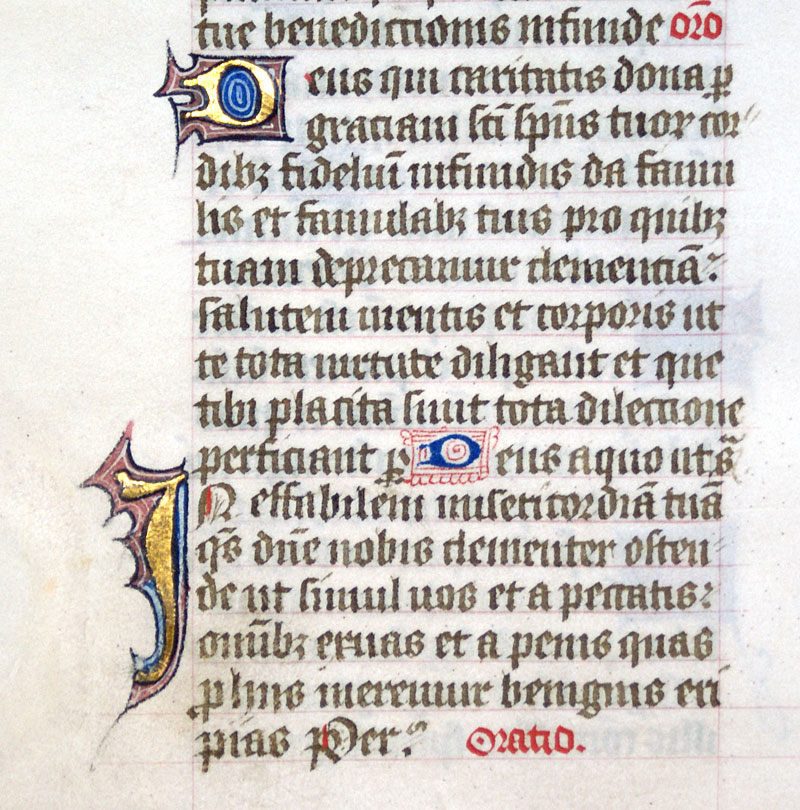 tue benedictionis infunde orō
Deus qui caritatis dona ꝑ
gratiam sc̄i sp̄us tuoꝝ cor
dibꝫ fideliū infundis da famu
lis et famulabꝫ tuis pro quibꝫ
tuam deprecamur clementiā.
salutem mentis et corporis ut
te tota virtute diligant et que
tibi placita sunt tota dilectione
perficiant ꝑ Deus a quo ut sͣ
Ineffabilem misericordiā tuā
qs̄ dn̄e nobis clementer osten-
de ut simul nos et a peccatis
om̄ibꝫ eruas et a penis quas
ꝓ hiis meremur benignus eri
pias Per. Oratio.